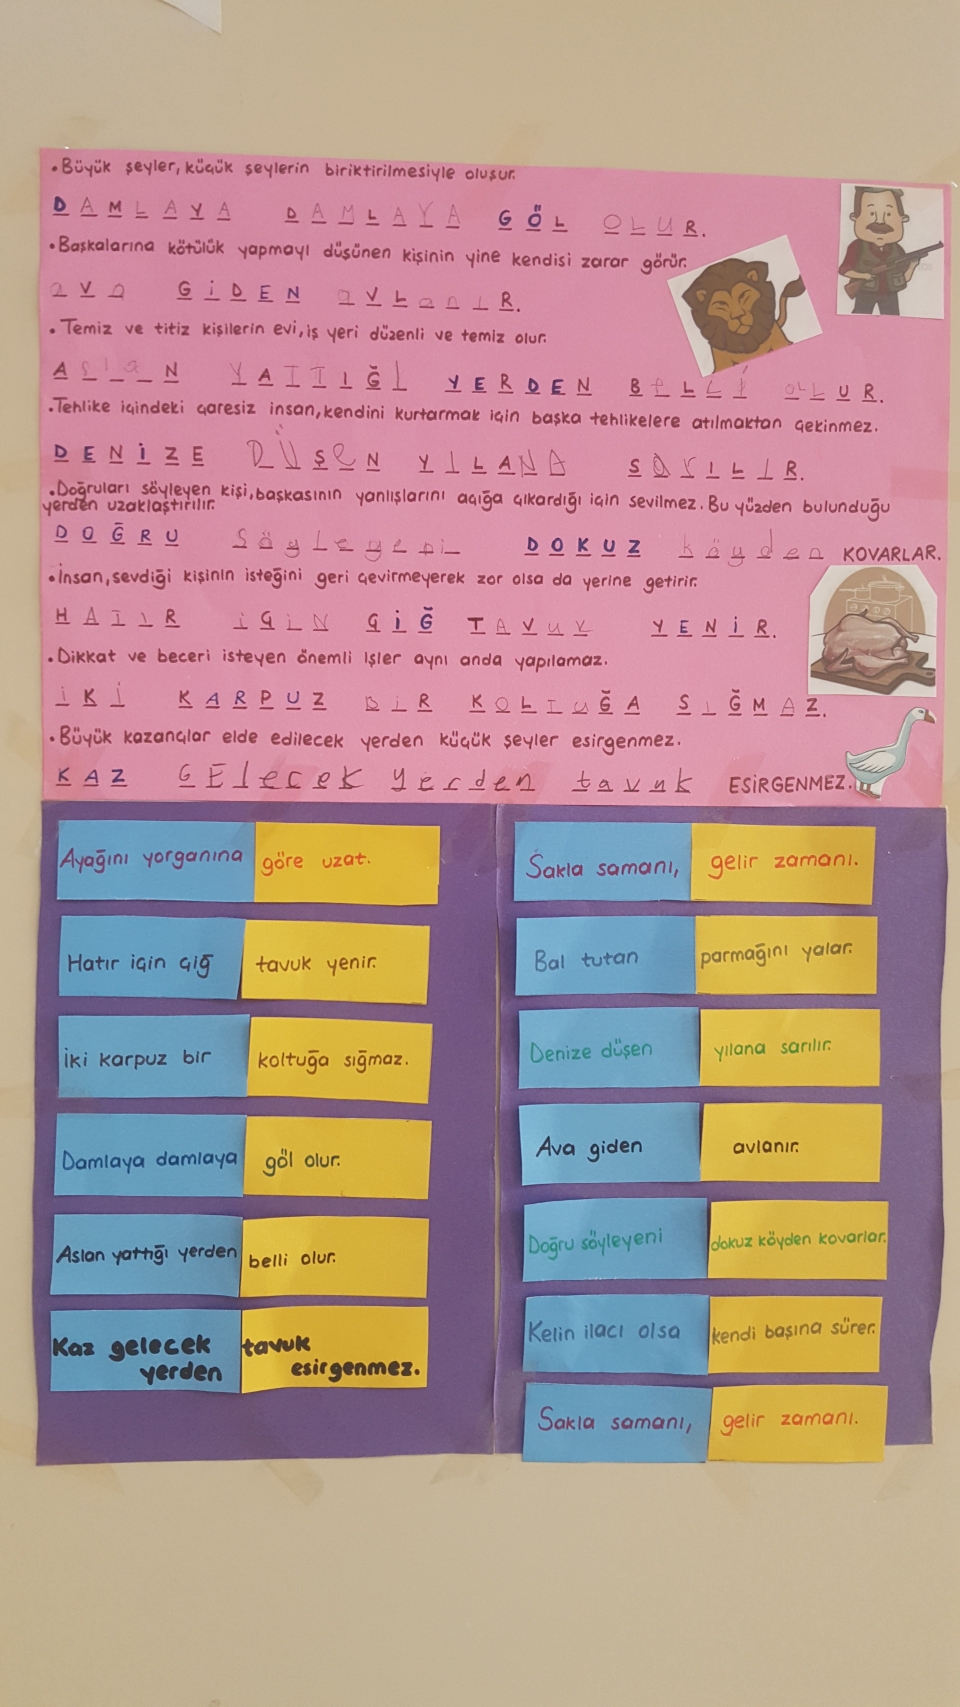 •Büyük şeyler, küçük şeylerin biriktirilmesiyle oluşur.
DAMLAYA DAMLAYA GÖL OLUR.
•Başkalarına kötülük yapmayı düşünen kişinin yine kendisi zarar görür.
aVa GİDEN aVLanıR.
•Temiz ve titiz kişilerin evi, iş yeri düzenli ve temiz olur.
AslaN YATTIĞI YERDEN BeLLİ OLUR.
•Tehlike içindeki çaresiz insan, kendini kurtarmak için başka tehlikelere atılmaktan çekinmez.
DENİZE DÜŞeN YILANA SARILIR.
•Doğruları söyleyen kişi, başkasının yanlışlarını açığa çıkardığı için sevilmez. Bu yüzden bulunduğu
yerden uzaklaştırılır.
DOĞRU Söyleyeni DOKUZ köyden KOVARLAR.
•İnsan, sevdiği kişinin isteğini geri çevirmeyerek zor olsa da yerine getirir.
HATIR İÇİN ÇİĞ TAVUK YENİR.
•Dikkat ve beceri isteyen önemli işler aynı anda yapılamaz.
İKİ KARPUZ BİR KOLTUĞA SIĞMAZ.
•Büyük kazançlar elde edilecek yerden küçük şeyler esirgenmez.
KAZ GElecek yerden tavuk ESİRGENMEZ.
Ayağını yorganına göre uzat.
Hatır için çiğ tavuk yenir.
İki karpuz bir koltuğa sığmaz.
Damlaya damlaya göl olur.
Aslan yattığı yerden belli olur.
Kaz gelecek tavuk
yerden esirgenmez.
Sakla samanı, gelir zamanı.
Bal tutan parmağını yalar.
Denize düşen yılana sarılır.
Ava giden avlanır.
Doğru söyleyeni dokuz köyden kovarlar.
Kelin ilacı olsa kendi başına sürer.
Sakla samanı, gelir zamanı.